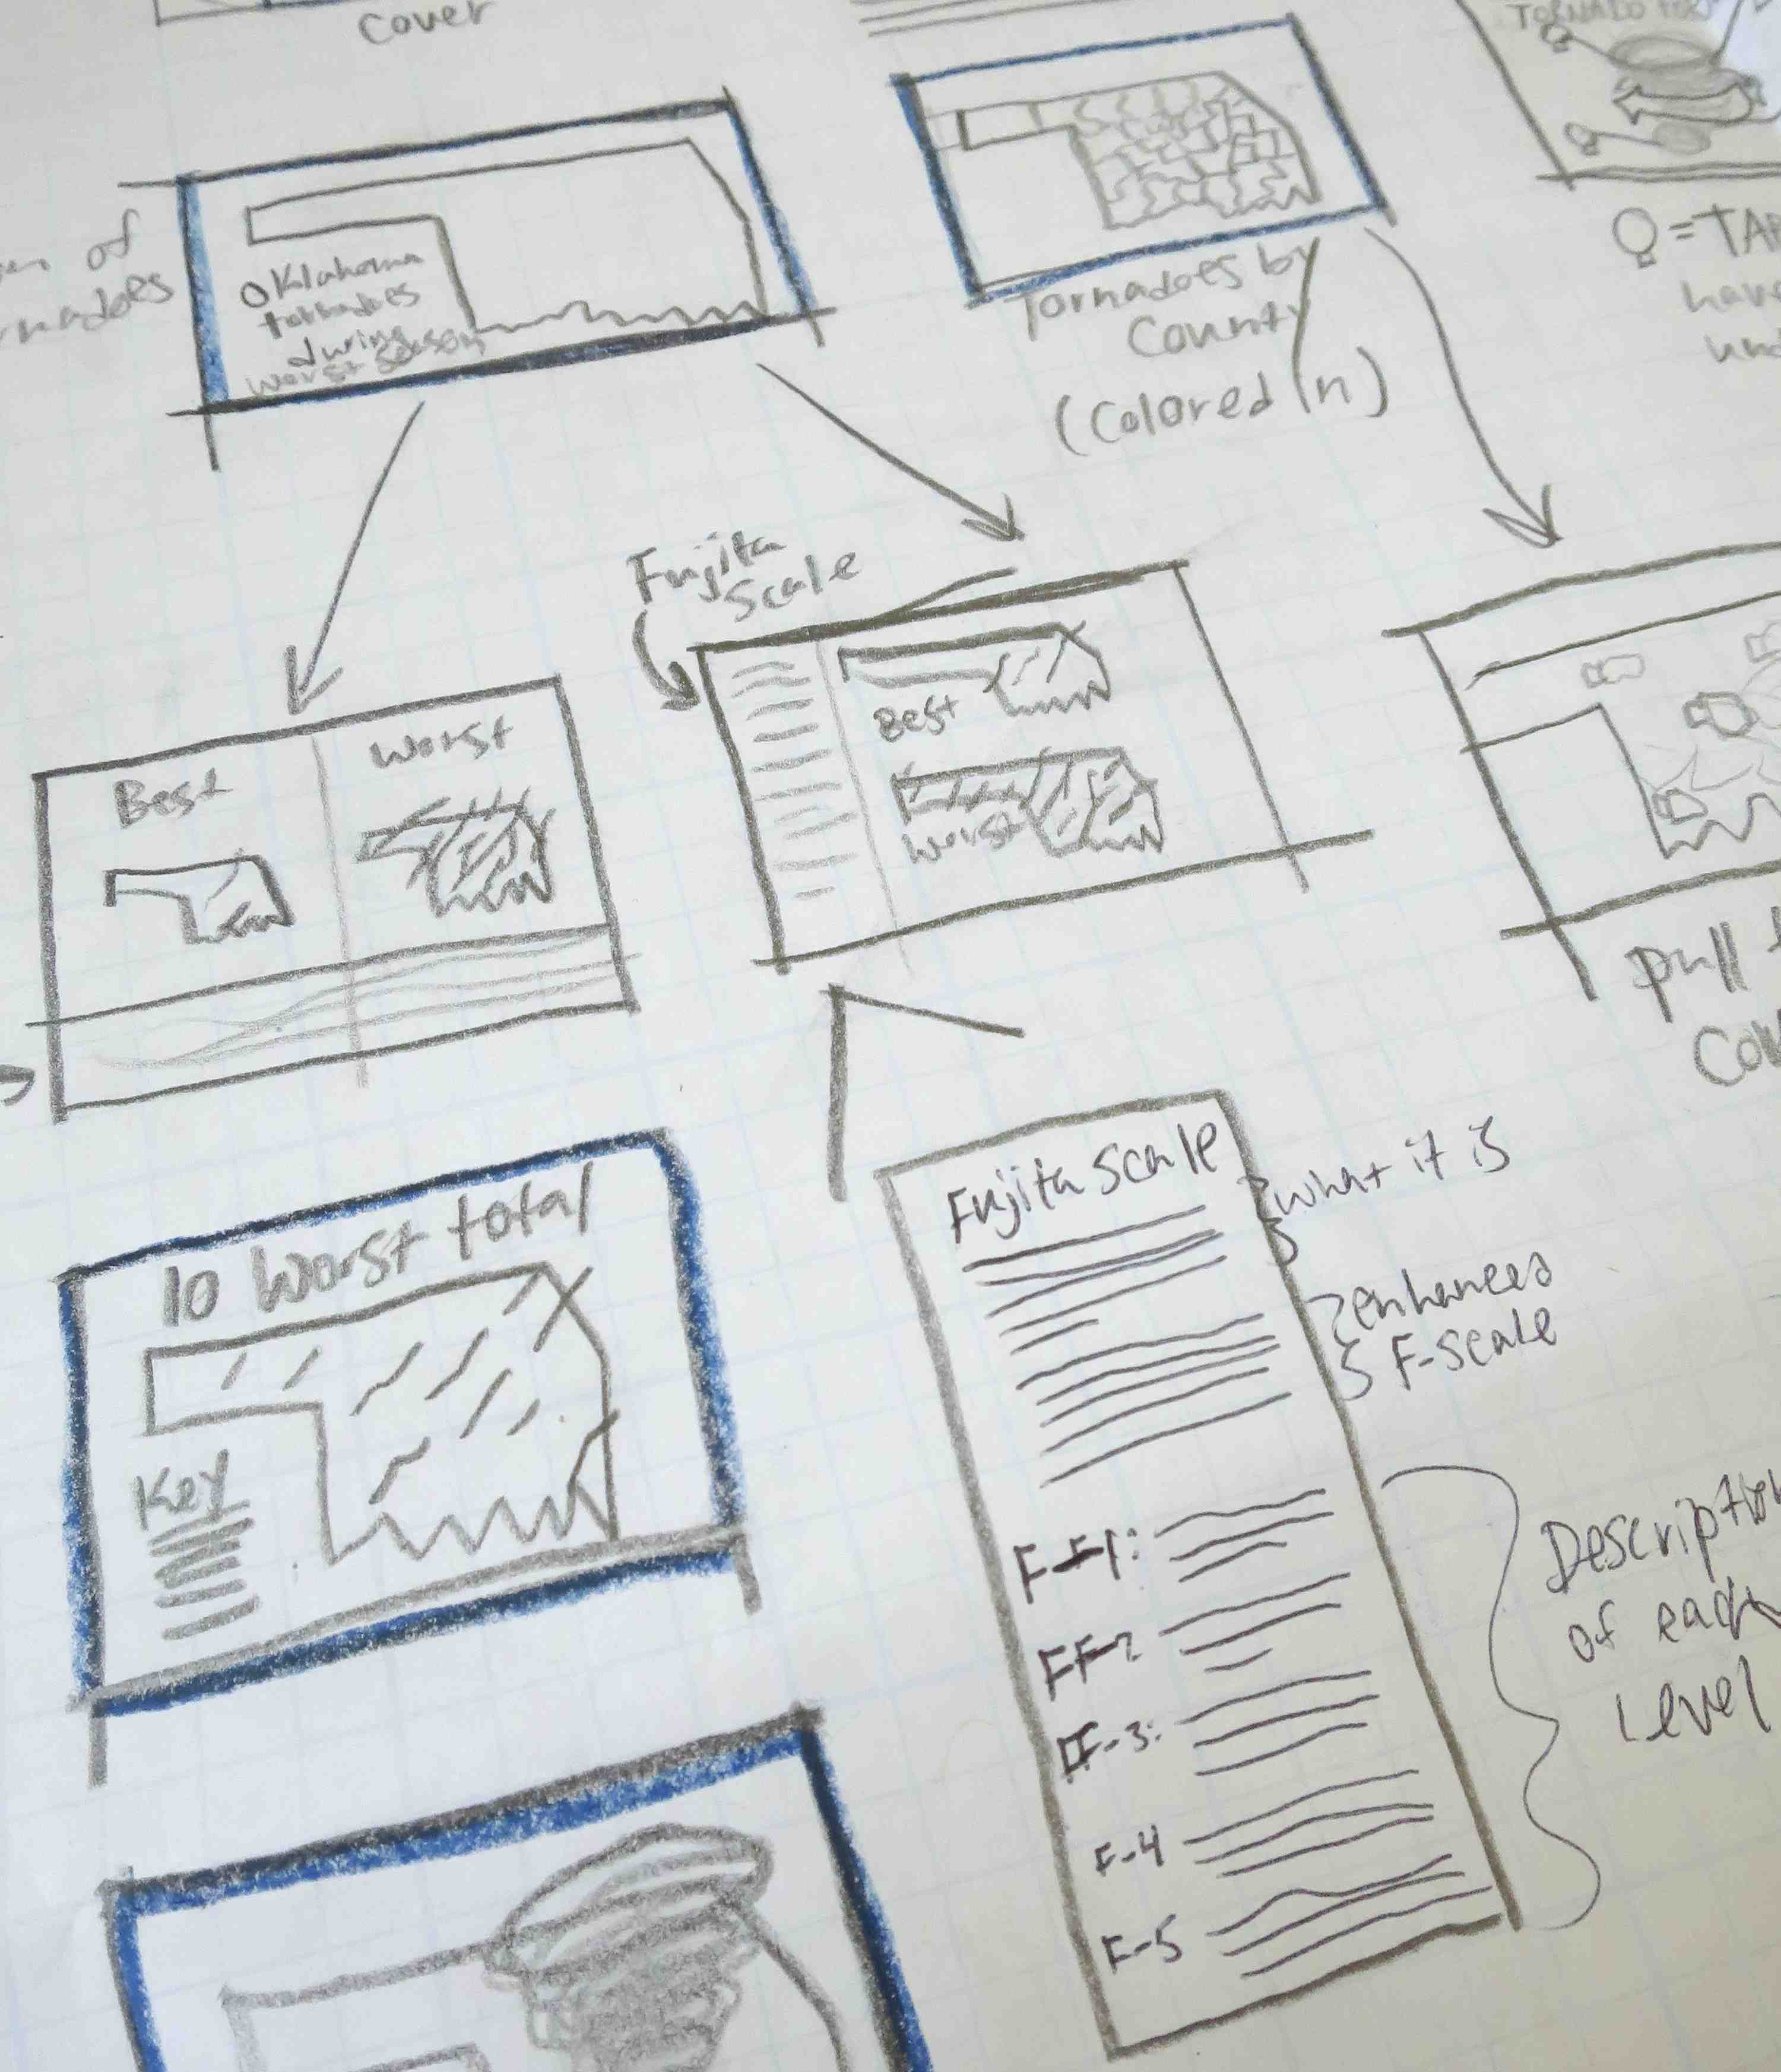 Cover
TORNADO
of
Oklahoma
tornadoes
during
worst season
Tornadoes by
County
(Colored in)
= TAP
have
Fujita
Scale
Best
Worst
Best
Worst
pull
10 Worst total
Key
Fujita Scale
what it is
enhances
F-Scale
F-F1:
FF-2
F-3:
F-4
F-5
Description
of each
Level